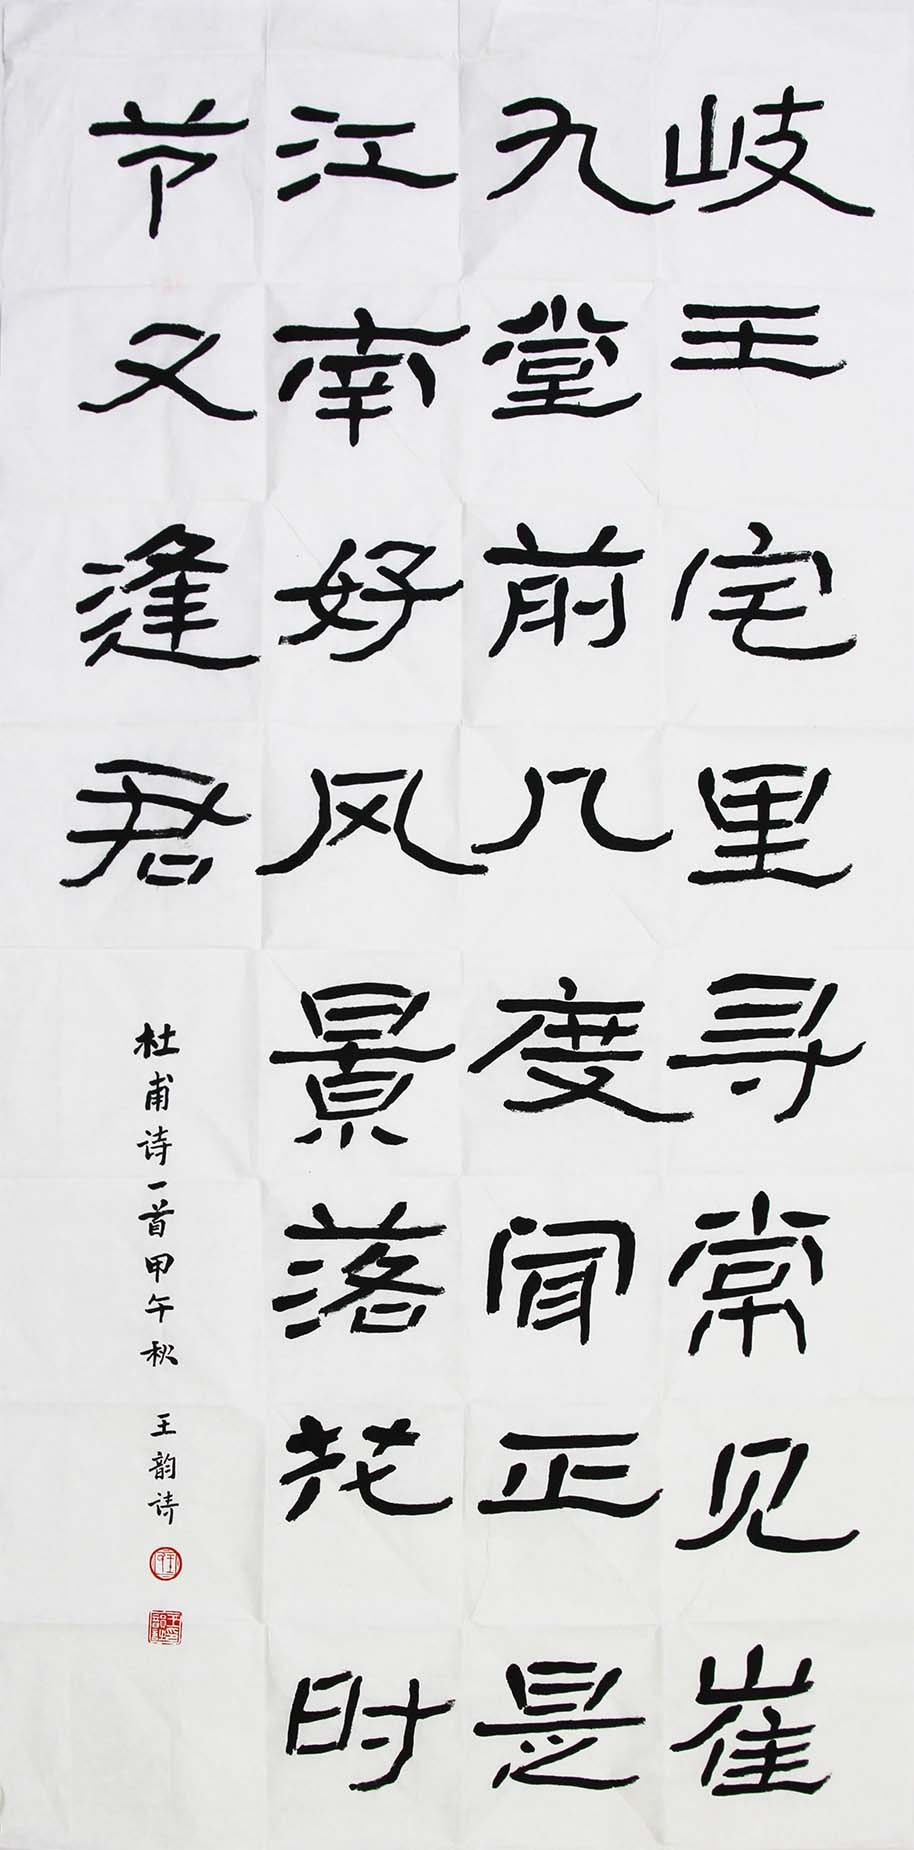 岐王宅里寻常见崔
九堂前几度闻正是
江南好风景落花时
节又逢君
杜甫诗一首甲午秋 王韵诗